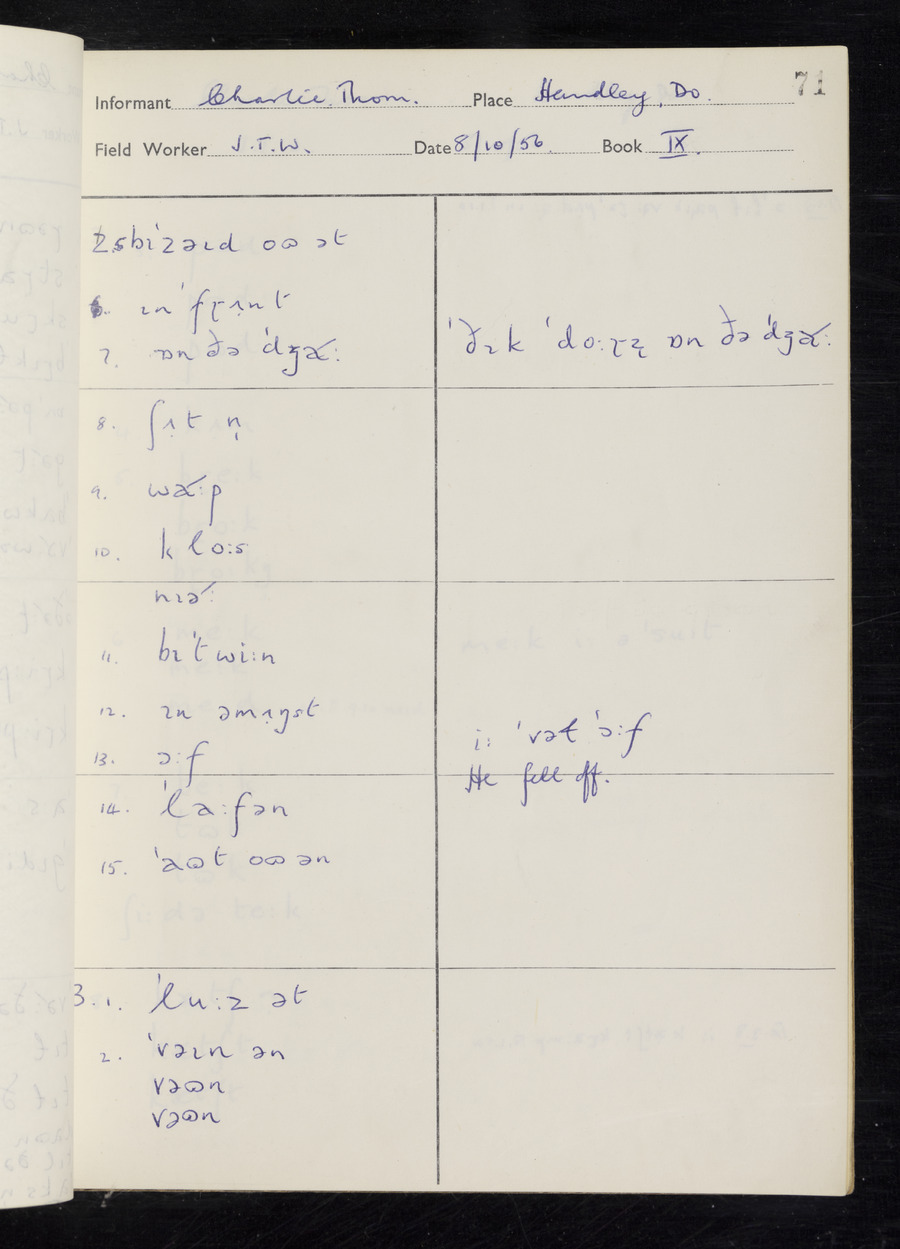 71
Informant Charlie Thom. Place Handley, Do.
Field Worker J.T.W. Date 8/10/56. Book IX.
5 bɪˈzəɪd oɷ ət
6. ɪn ˈfɽʌ̣nt
7. ɒn ðə ˈdʒɑ˞:
ˈðɪk ˈdo:ɽz̢ ɒn ðə ˈdʒɑ˞:
8. ʃʌ̣t n̩
9. wɑ˞:p
10. klo:s
nɪə˞:
11. bɪˈtwi:n
12. ɪn əmʌ̣ŋst
13. ɔ:f
i: ˈvət ˈɔ:f
He fell off.
14. ˈla:fən
15. ˈaɷt oɷ ən
3.1. ˈlu:z ət
2. ˈvəɪn ən
vəɷn
vəɷn